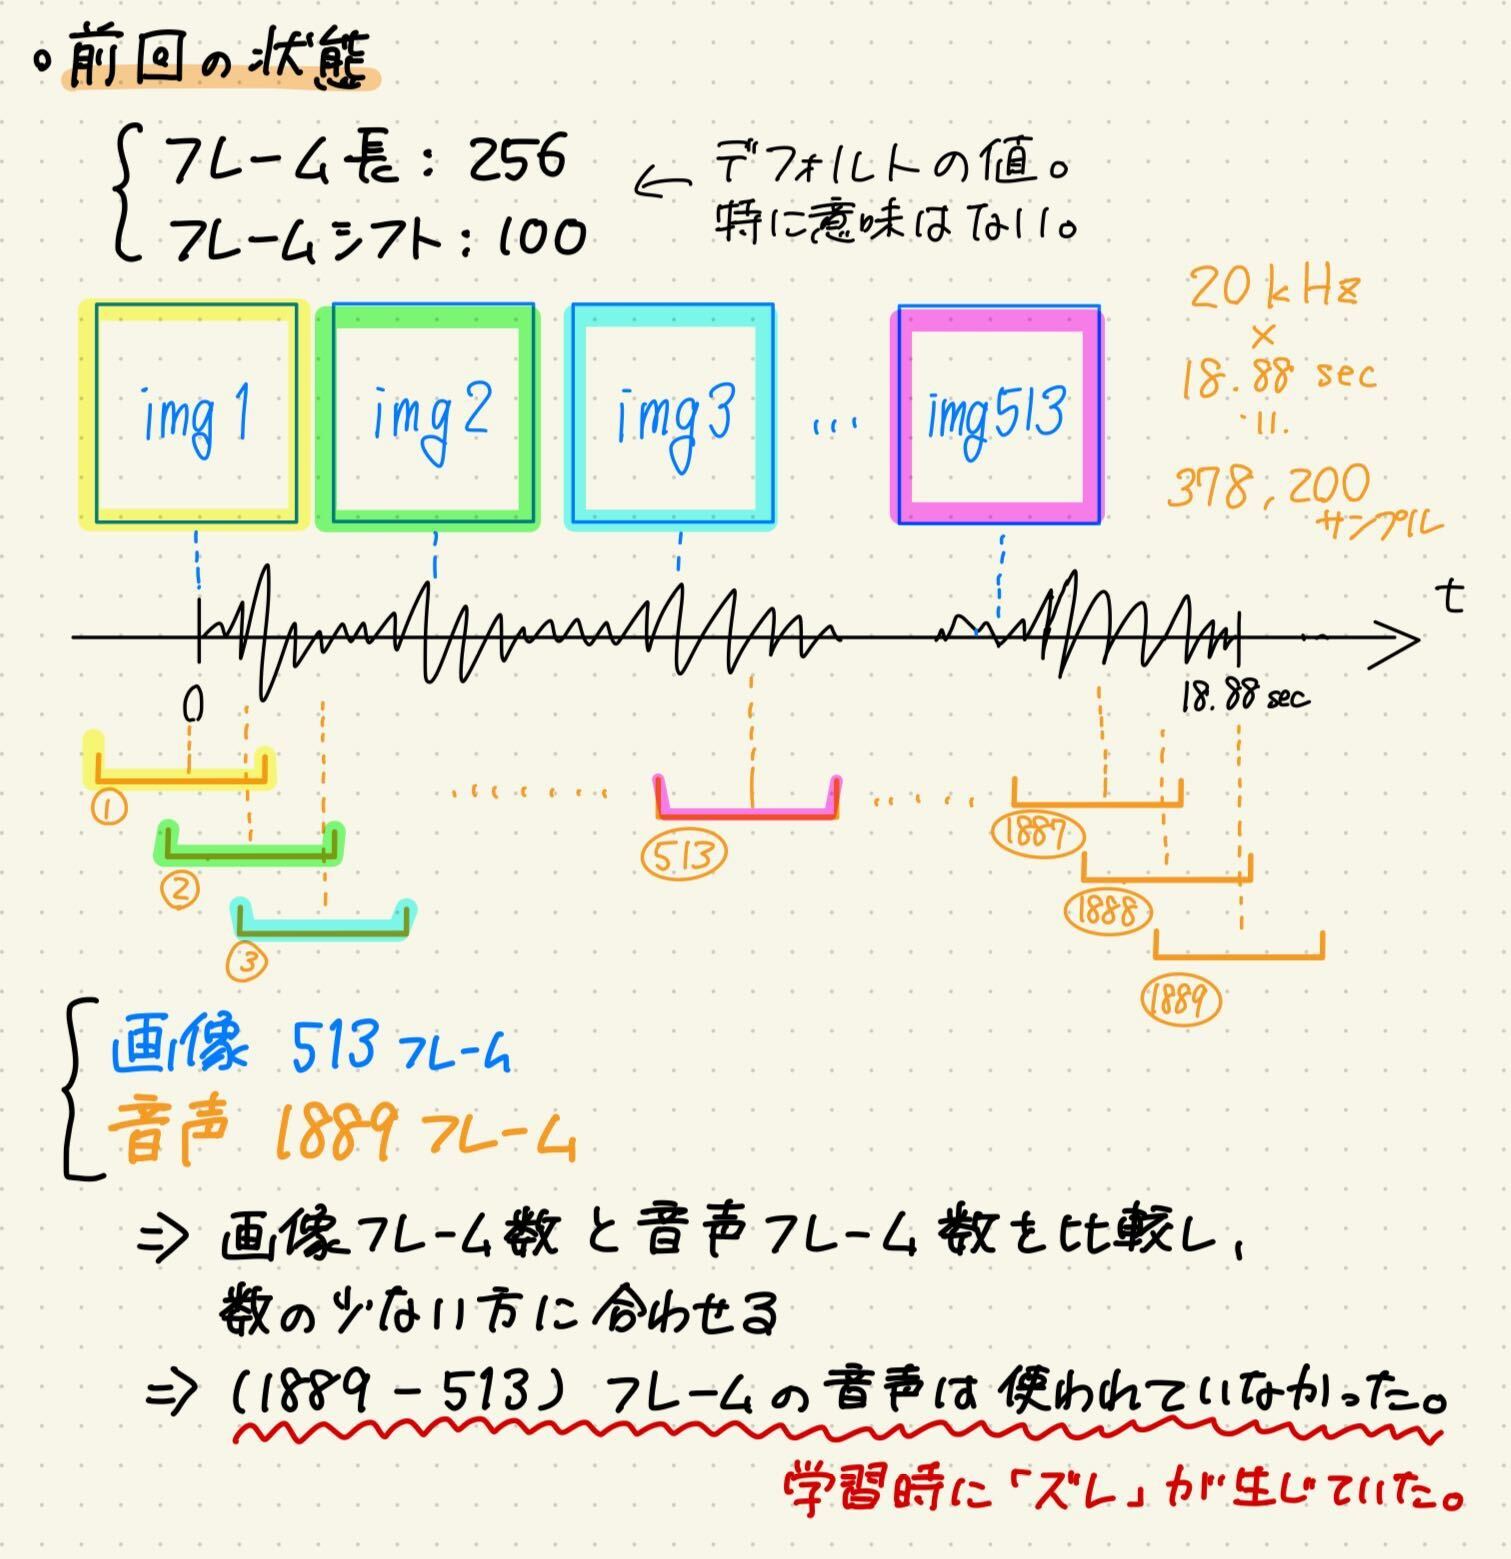 前回の状態
フレーム長：256
フレームシフト：100
← デフォルトの値。
特に意味はない。
20kHz
×
18.88 sec
378,200
サンプル
img1
img2
img3
...
img513
t
0
18.88 sec
①
②
③
513
1887
1888
1889
画像 513 フレーム
音声 1889 フレーム
⇒ 画像フレーム数と音声フレーム数を比較し,
数の少ない方に合わせる
⇒ (1889 - 513) フレームの音声は使われていなかった。
学習時に「ズレ」が生じていた。